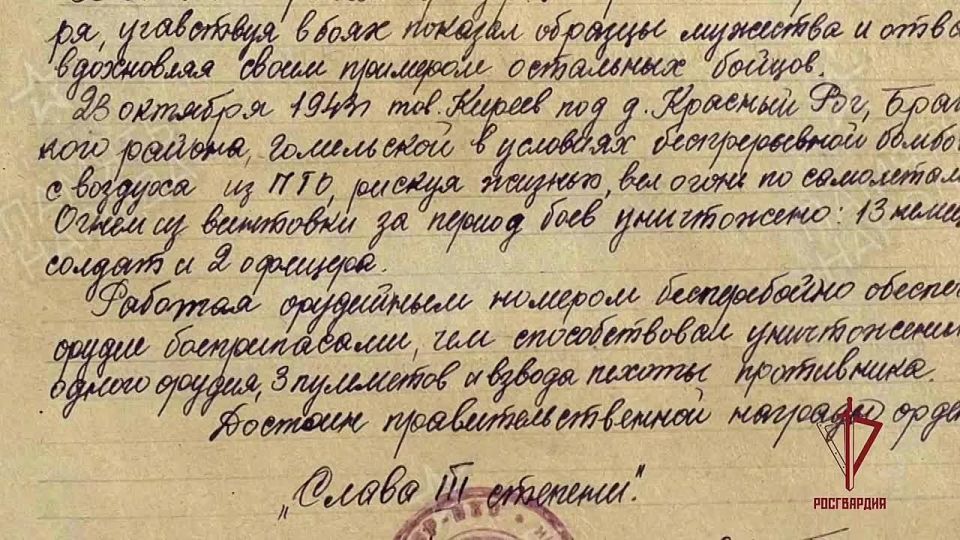 ря, учавствуя в боях показал образцы мужества и отва
вдохновляя своим примером остальных бойцов.
23 октября 1943г тов. Киреев под д. Красный Рог, Браг
кого района, Гомельской в условиях беспрерывной бомбо
с воздуха из ПТО, рискуя жизнью, вел огонь по самолетам
Огнем из винтовки за период боев уничтожено: 13 немец
солдат и 2 офицера.
Работая орудийным номером бесперебойно обеспеч
орудие боеприпасами, чем способствовал уничтожении
одного орудия, 3 пулеметов и взвода пехоты противника.
Достоин правительственной награды орде
„Слава III степени".
РОСГВАРДИЯ